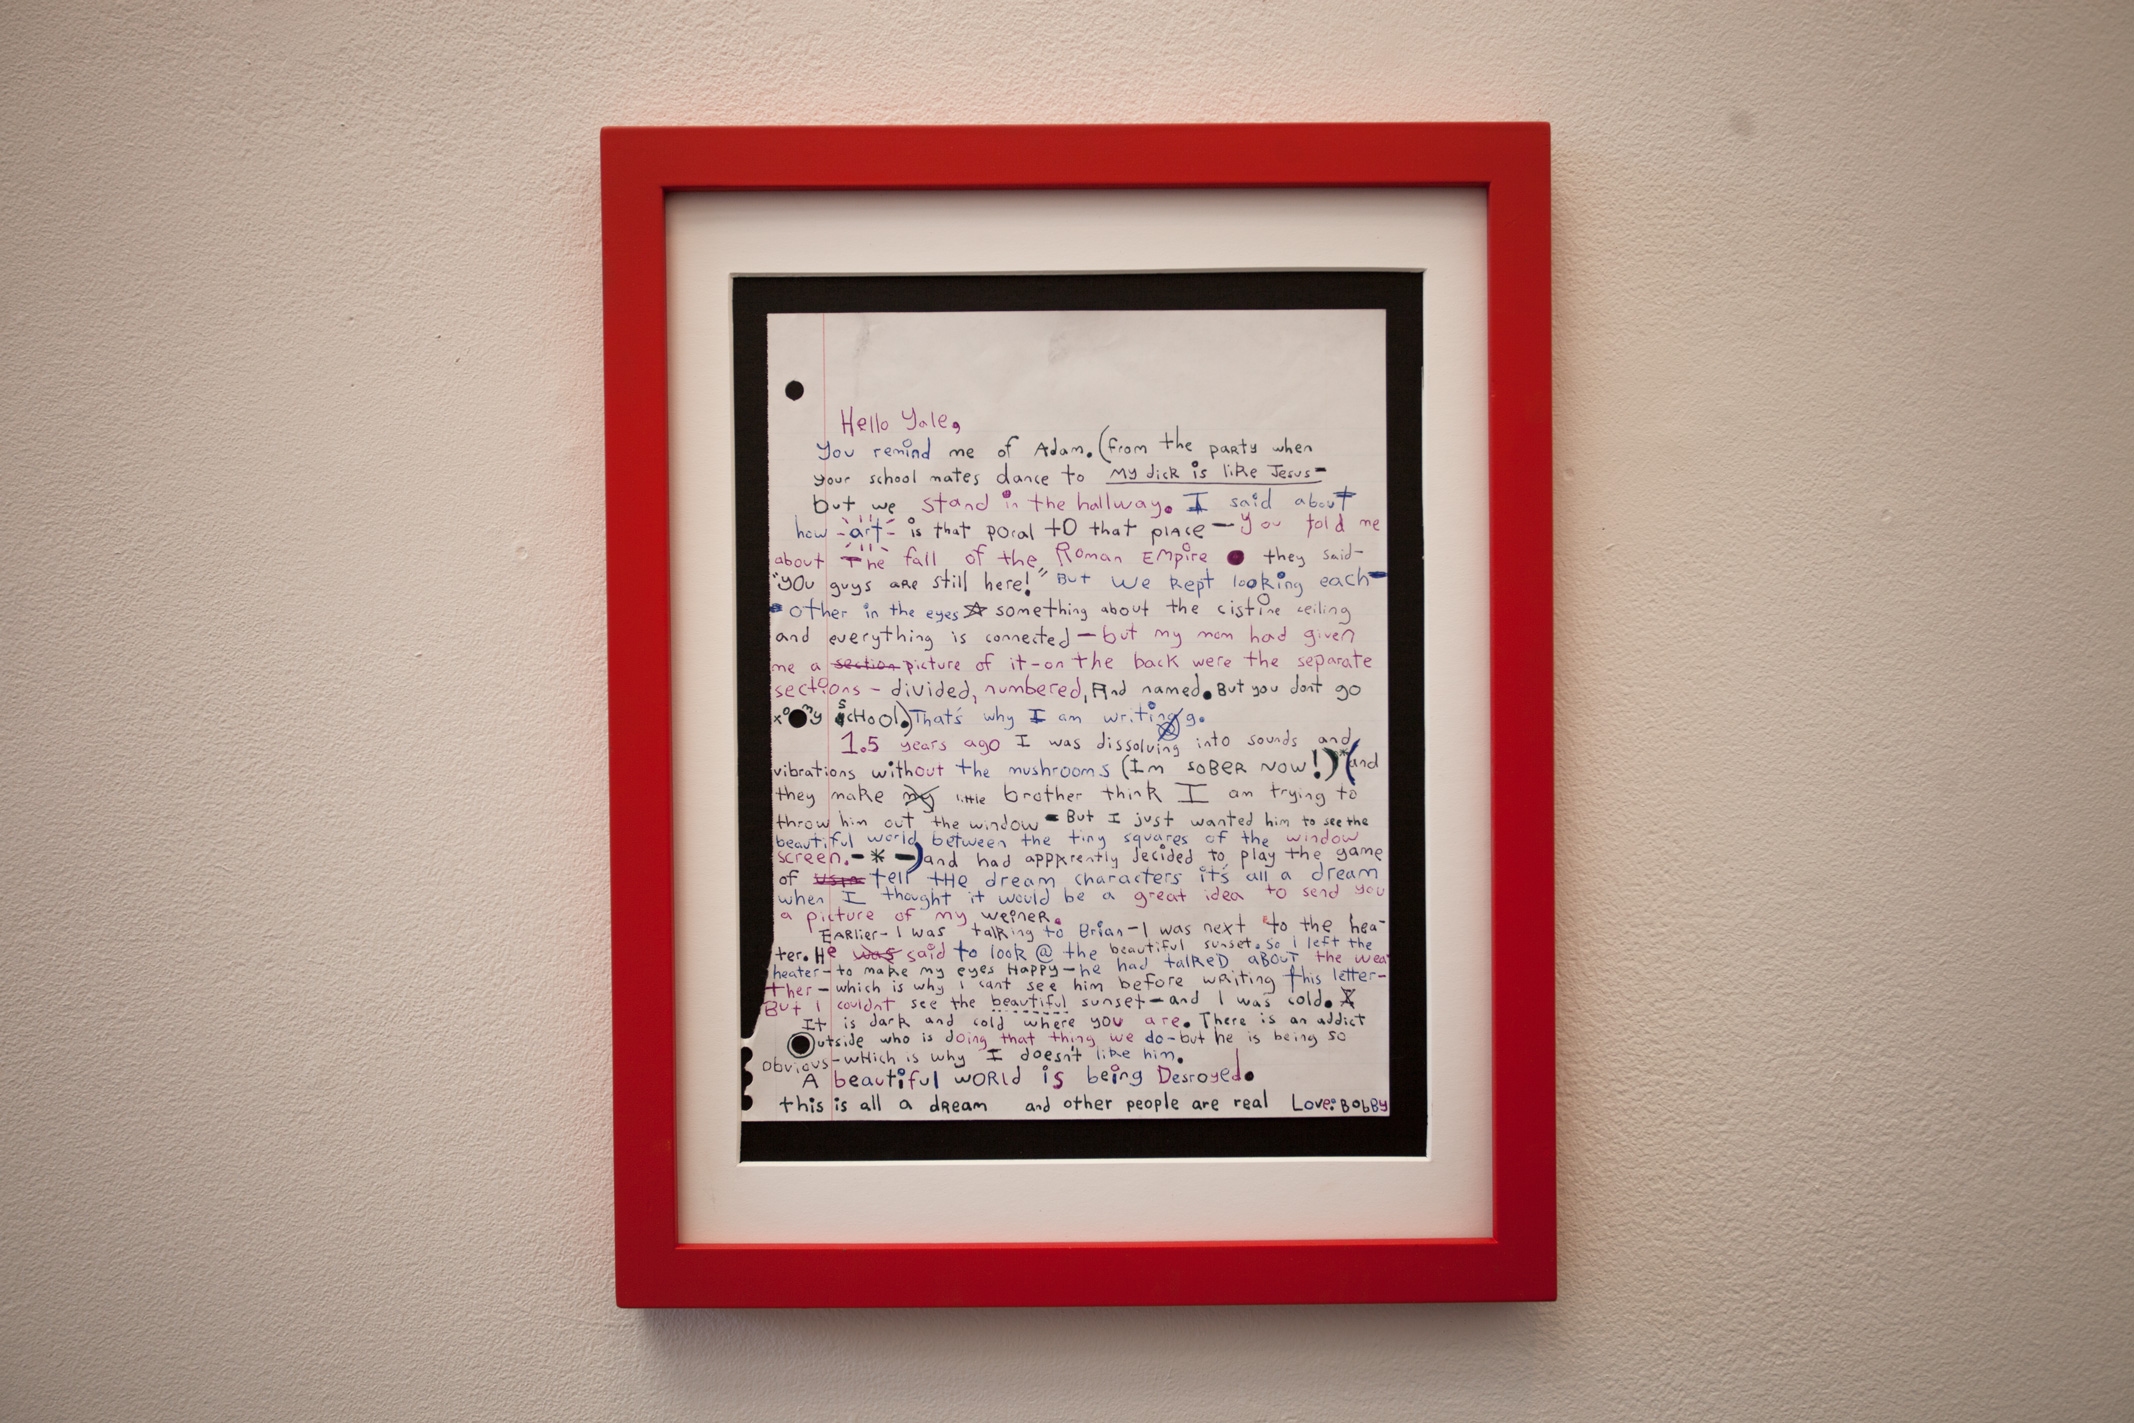 Hello Yale,
You remind me of Adam. (from the party when
your school mates dance to My dick is like Jesus-
but we stand in the hallway. I said about
how -art- is that poral to that place — You told me
about The fall of the Roman Empire they said-
"YOU guys are still here!" But we kept looking each-
- other in the eyes ☆ something about the cistine ceiling
and everything is connected — but my mom had given
me a section picture of it - on the back were the separate
sections - divided, numbered, And named. But you dont go
to my scHool.) That's why I am writing.
1.5 years ago I was dissolving into sounds and
vibrations without the mushrooms (Im SOBER NOW!) *(and
they make my little brother think I am trying to
throw him out the window - But I just wanted him to see the
beautiful world between the tiny squares of the window
screen. - * -) and had appArently decided to play the game
of tell tHe dream characters it's all a dream
when I thought it would be a great idea to send you
a picture of my weiner.
EARlier - I was talking to Brian - I was next to the hea-
ter. He was said to look @ the beautiful sunset. So I left the
heater - to make my eyes Happy - he had talkeD aBOUT the wea
ther - which is why I cant see him before wRiting this letter-
But I couldnt see the beautiful sunset - and I was cold.
It is dark and cold where you are. There is an addict
Outside who is doing that thing we do - but he is being so
obvious - wHich is why I doesn't like him.
A beautiful woRld is being Desroyed.
this is all a dReam and other people are real Love: BobBy